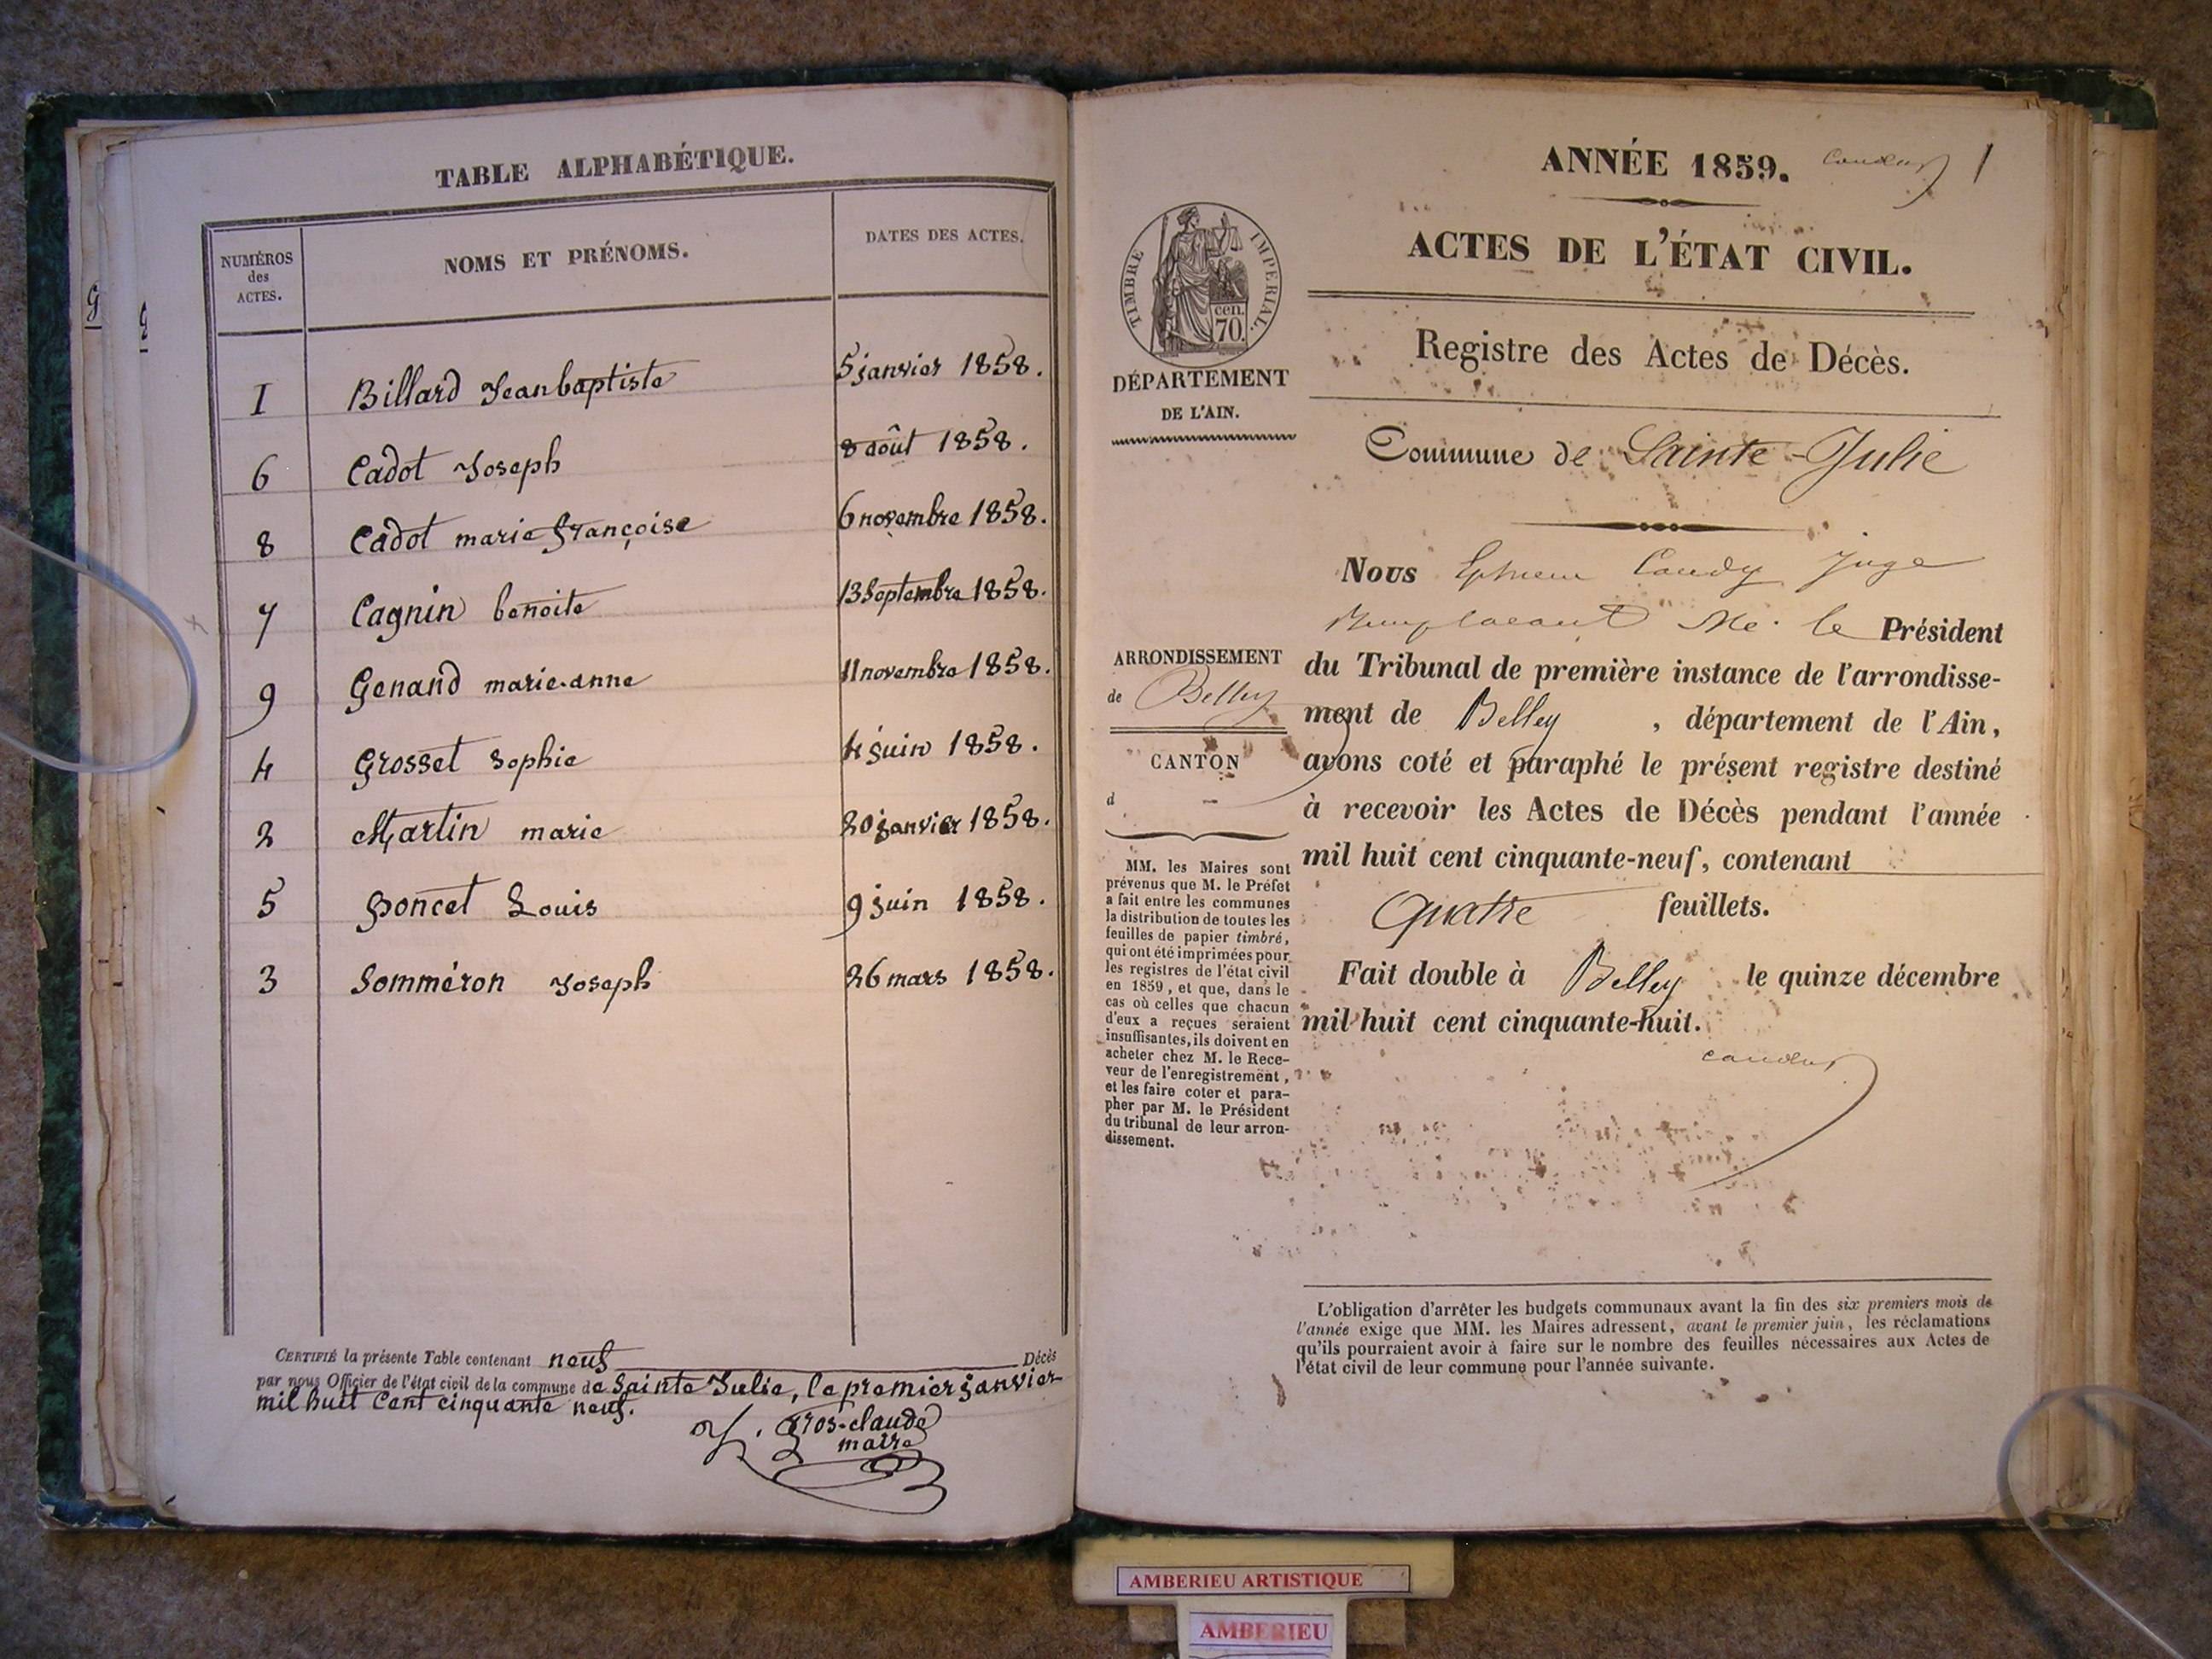 TABLE ALPHABÉTIQUE.
NUMÉROS
des
ACTES.
NOMS ET PRÉNOMS.
DATES DES ACTES.
1 Billard Jean baptiste 5 janvier 1858.
6 Cadot Joseph 8 août 1858.
8 Cadot marie françoise 6 novembre 1858.
7 Cagnin benoite 13 Septembre 1858.
9 Genand marie-anne 11 novembre 1858.
4 Grosset Sophie 4 juin 1858.
2 Martin marie 20 janvier 1858.
5 Poncet Louis 9 juin 1858.
3 Somméron Joseph 26 mars 1858.
CERTIFIÉ la présente Table contenant neuf Décès
par nous Officier de l'état civil de la commune de Sainte Julie, le premier janvier
mil huit Cent cinquante neuf.
gros-claude
maire
ANNÉE 1859. 1
ACTES DE L'ÉTAT CIVIL.
Registre des Actes de Décès.
Commune de Sainte-Julie
TIMBRE IMPERIAL.
cen.
70.
DÉPARTEMENT
DE L'AIN.
ARRONDISSEMENT
de Belley
CANTON
d -
MM. les Maires sont
prévenus que M. le Préfet
a fait entre les communes
la distribution de toutes les
feuilles de papier timbré,
qui ont été imprimées pour
les registres de l'état civil
en 1859, et que, dans le
cas où celles que chacun
d'eux a reçues seraient
insuffisantes, ils doivent en
acheter chez M. le Rece-
veur de l'enregistrement,
et les faire coter et para-
pher par M. le Président
du tribunal de leur arron-
dissement.
Nous Juge
le Président
du Tribunal de première instance de l'arrondisse-
ment de Belley , département de l'Ain,
avons coté et paraphé le présent registre destiné
à recevoir les Actes de Décès pendant l'année
mil huit cent cinquante-neuf, contenant
Quatre feuillets.
Fait double à Belley le quinze décembre
mil huit cent cinquante-huit.
L'obligation d'arrêter les budgets communaux avant la fin des six premiers mois de
l'année exige que MM. les Maires adressent, avant le premier juin, les réclamations
qu'ils pourraient avoir à faire sur le nombre des feuilles nécessaires aux Actes de
l'état civil de leur commune pour l'année suivante.
AMBERIEU ARTISTIQUE
AMBERIEU